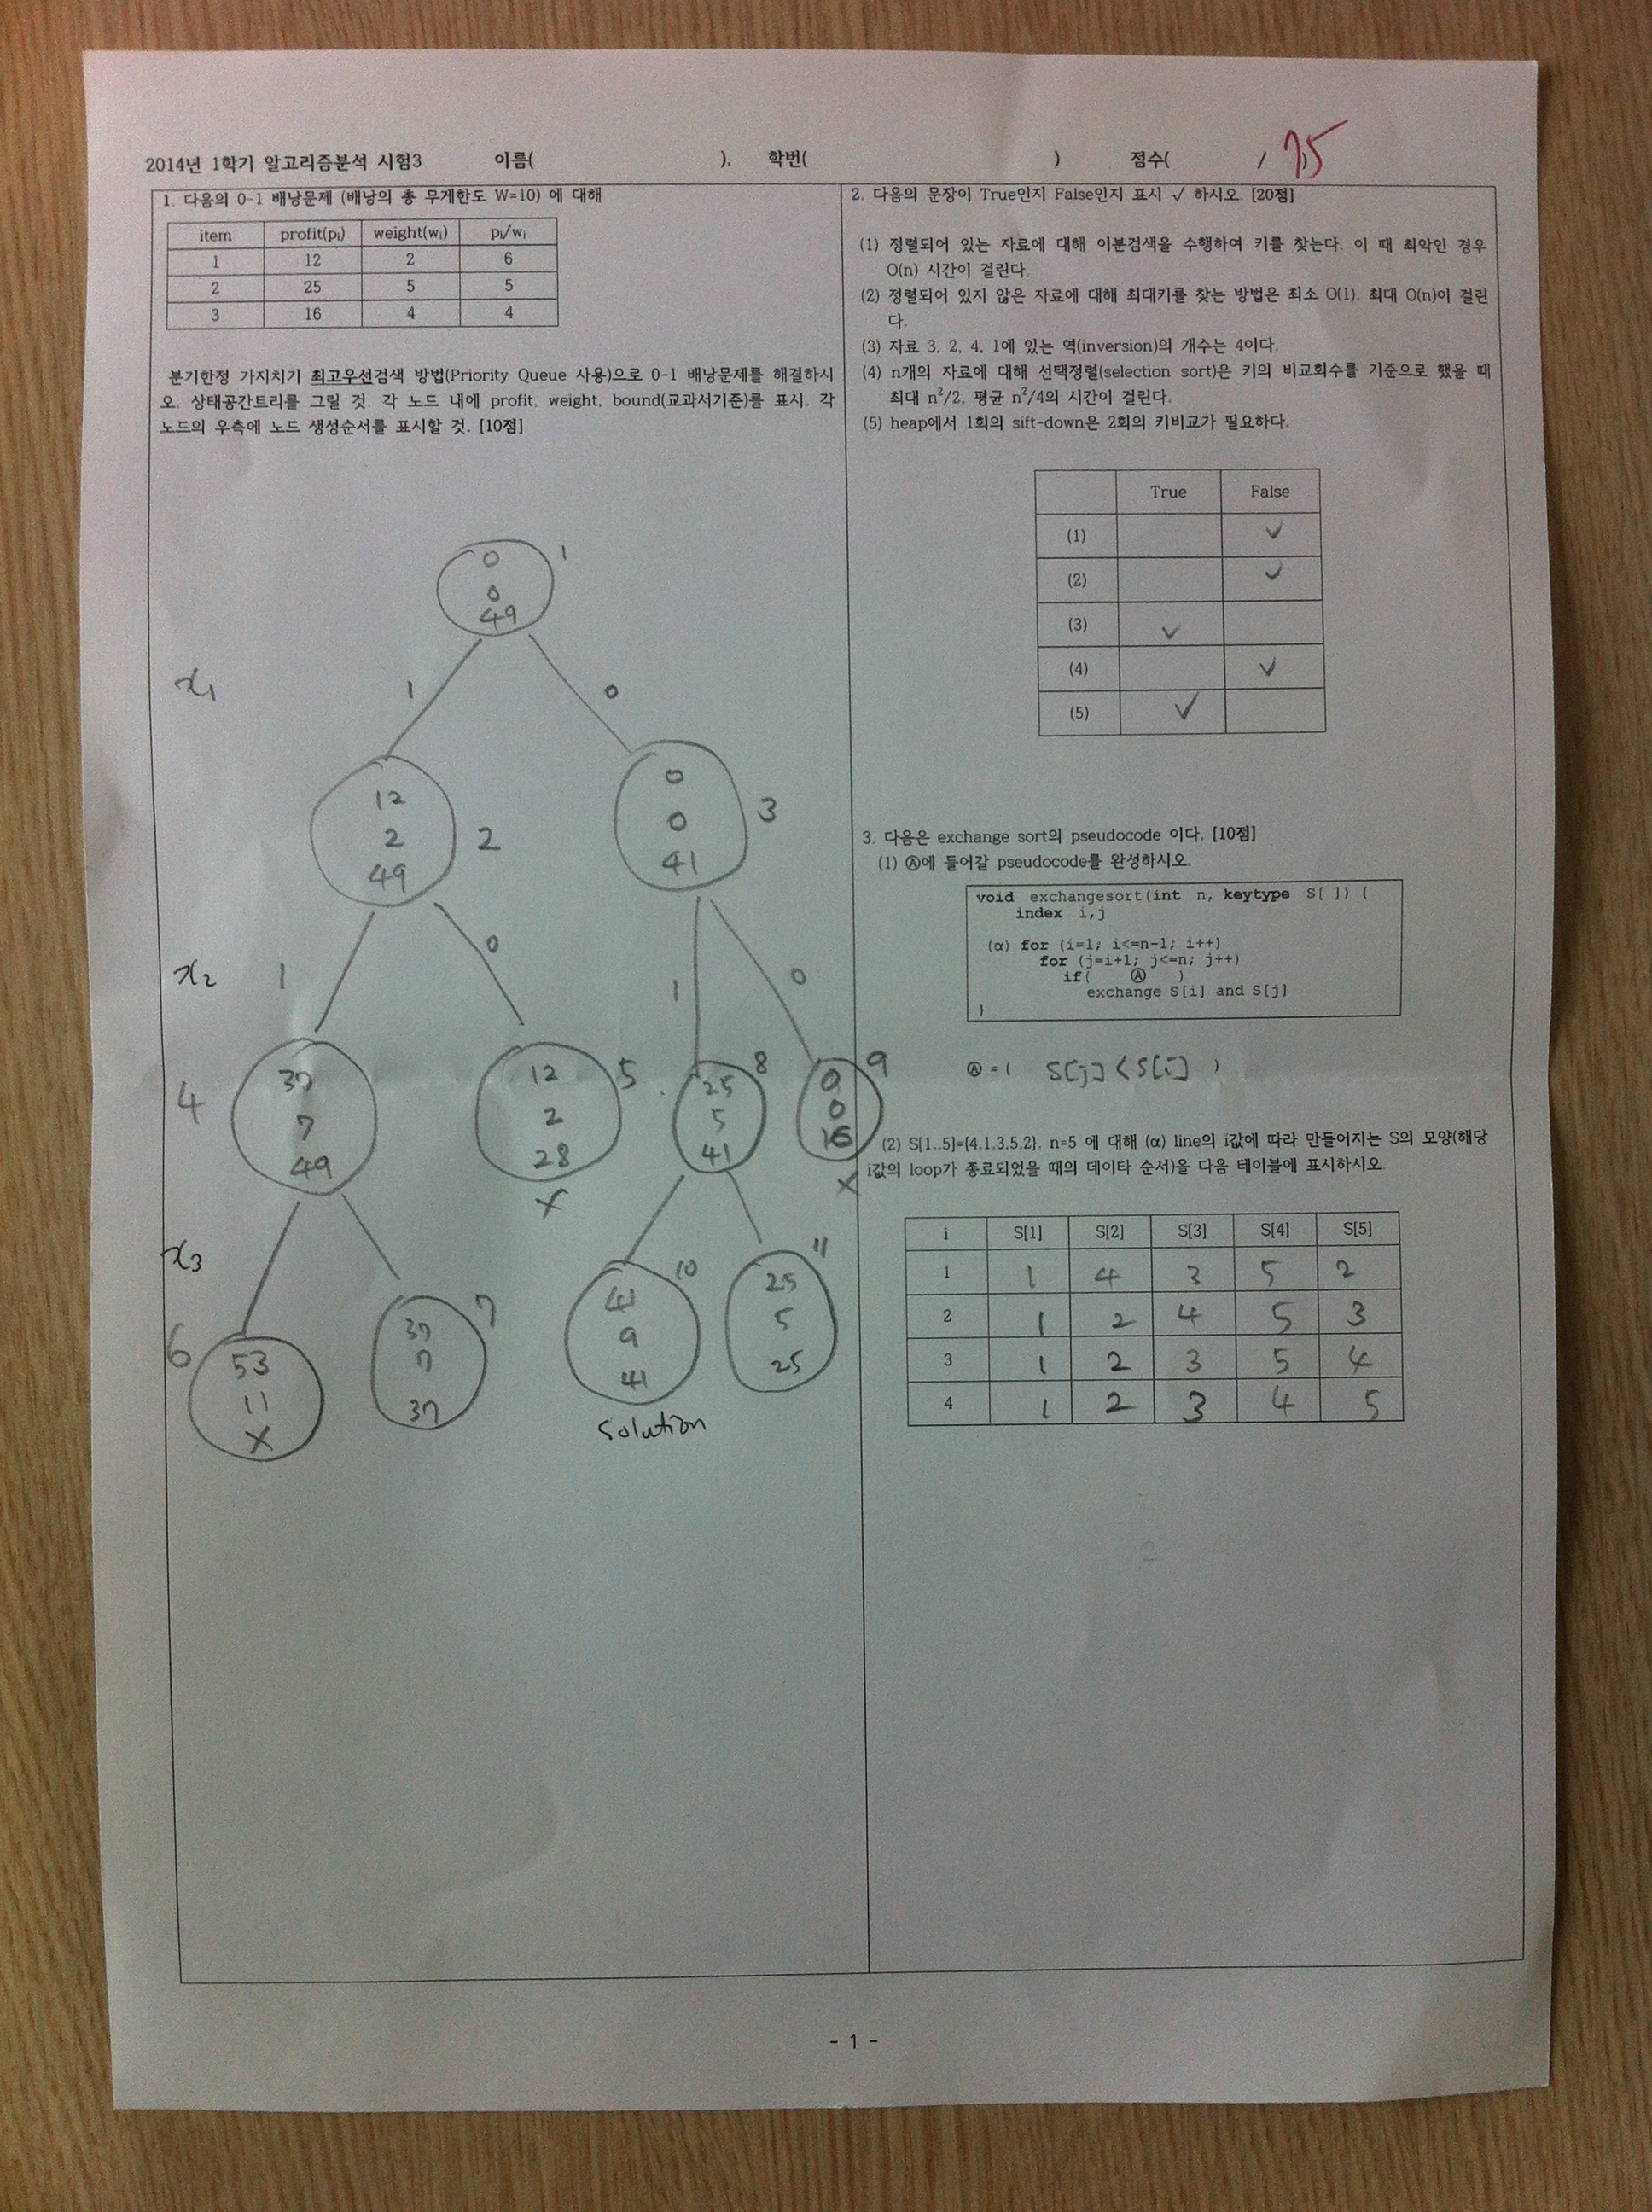 2014년 1학기 알고리즘분석 시험3 이름( ), 학번( ) 점수( / 75
1. 다음의 0-1 배낭문제 (배낭의 총 무게한도 W=10) 에 대해
item profit(pᵢ) weight(wᵢ) pᵢ/wᵢ
1 12 2 6
2 25 5 5
3 16 4 4
분기한정 가지치기 최고우선검색 방법(Priority Queue 사용)으로 0-1 배낭문제를 해결하시
오. 상태공간트리를 그릴 것. 각 노드 내에 profit, weight, bound(교과서기준)를 표시. 각
노드의 우측에 노드 생성순서를 표시할 것. [10점]
0 1
0
49
x₁ 1 0
12
2 2
49
0
0 3
41
x₂ 1 0 1 0
4
37
7
49
12 5
2
28
X
25 8
5
41
0 9
0
16
X
x₃
6
53
11
X
37 7
7
37
41 10
9
41
solution
25 11
5
25
2. 다음의 문장이 True인지 False인지 표시 √ 하시오. [20점]
(1) 정렬되어 있는 자료에 대해 이분검색을 수행하여 키를 찾는다. 이 때 최악인 경우
O(n) 시간이 걸린다.
(2) 정렬되어 있지 않은 자료에 대해 최대키를 찾는 방법은 최소 O(1), 최대 O(n)이 걸린
다.
(3) 자료 3, 2, 4, 1에 있는 역(inversion)의 개수는 4이다.
(4) n개의 자료에 대해 선택정렬(selection sort)은 키의 비교회수를 기준으로 했을 때
최대 n²/2, 평균 n²/4의 시간이 걸린다.
(5) heap에서 1회의 sift-down은 2회의 키비교가 필요하다.
True False
(1) ✓
(2) ✓
(3) ✓
(4) ✓
(5) ✓
3. 다음은 exchange sort의 pseudocode 이다. [10점]
(1) Ⓐ에 들어갈 pseudocode를 완성하시오.
void exchangesort(int n, keytype S[ ]) {
index i,j
(α) for (i=1; i<=n-1; i++)
for (j=i+1; j<=n; j++)
if( Ⓐ )
exchange S[i] and S[j]
}
Ⓐ = ( S[j] < S[i] )
(2) S[1..5]={4,1,3,5,2}, n=5 에 대해 (α) line의 i값에 따라 만들어지는 S의 모양(해당
i값의 loop가 종료되었을 때의 데이타 순서)을 다음 테이블에 표시하시오.
i S[1] S[2] S[3] S[4] S[5]
1 1 4 3 5 2
2 1 2 4 5 3
3 1 2 3 5 4
4 1 2 3 4 5
- 1 -